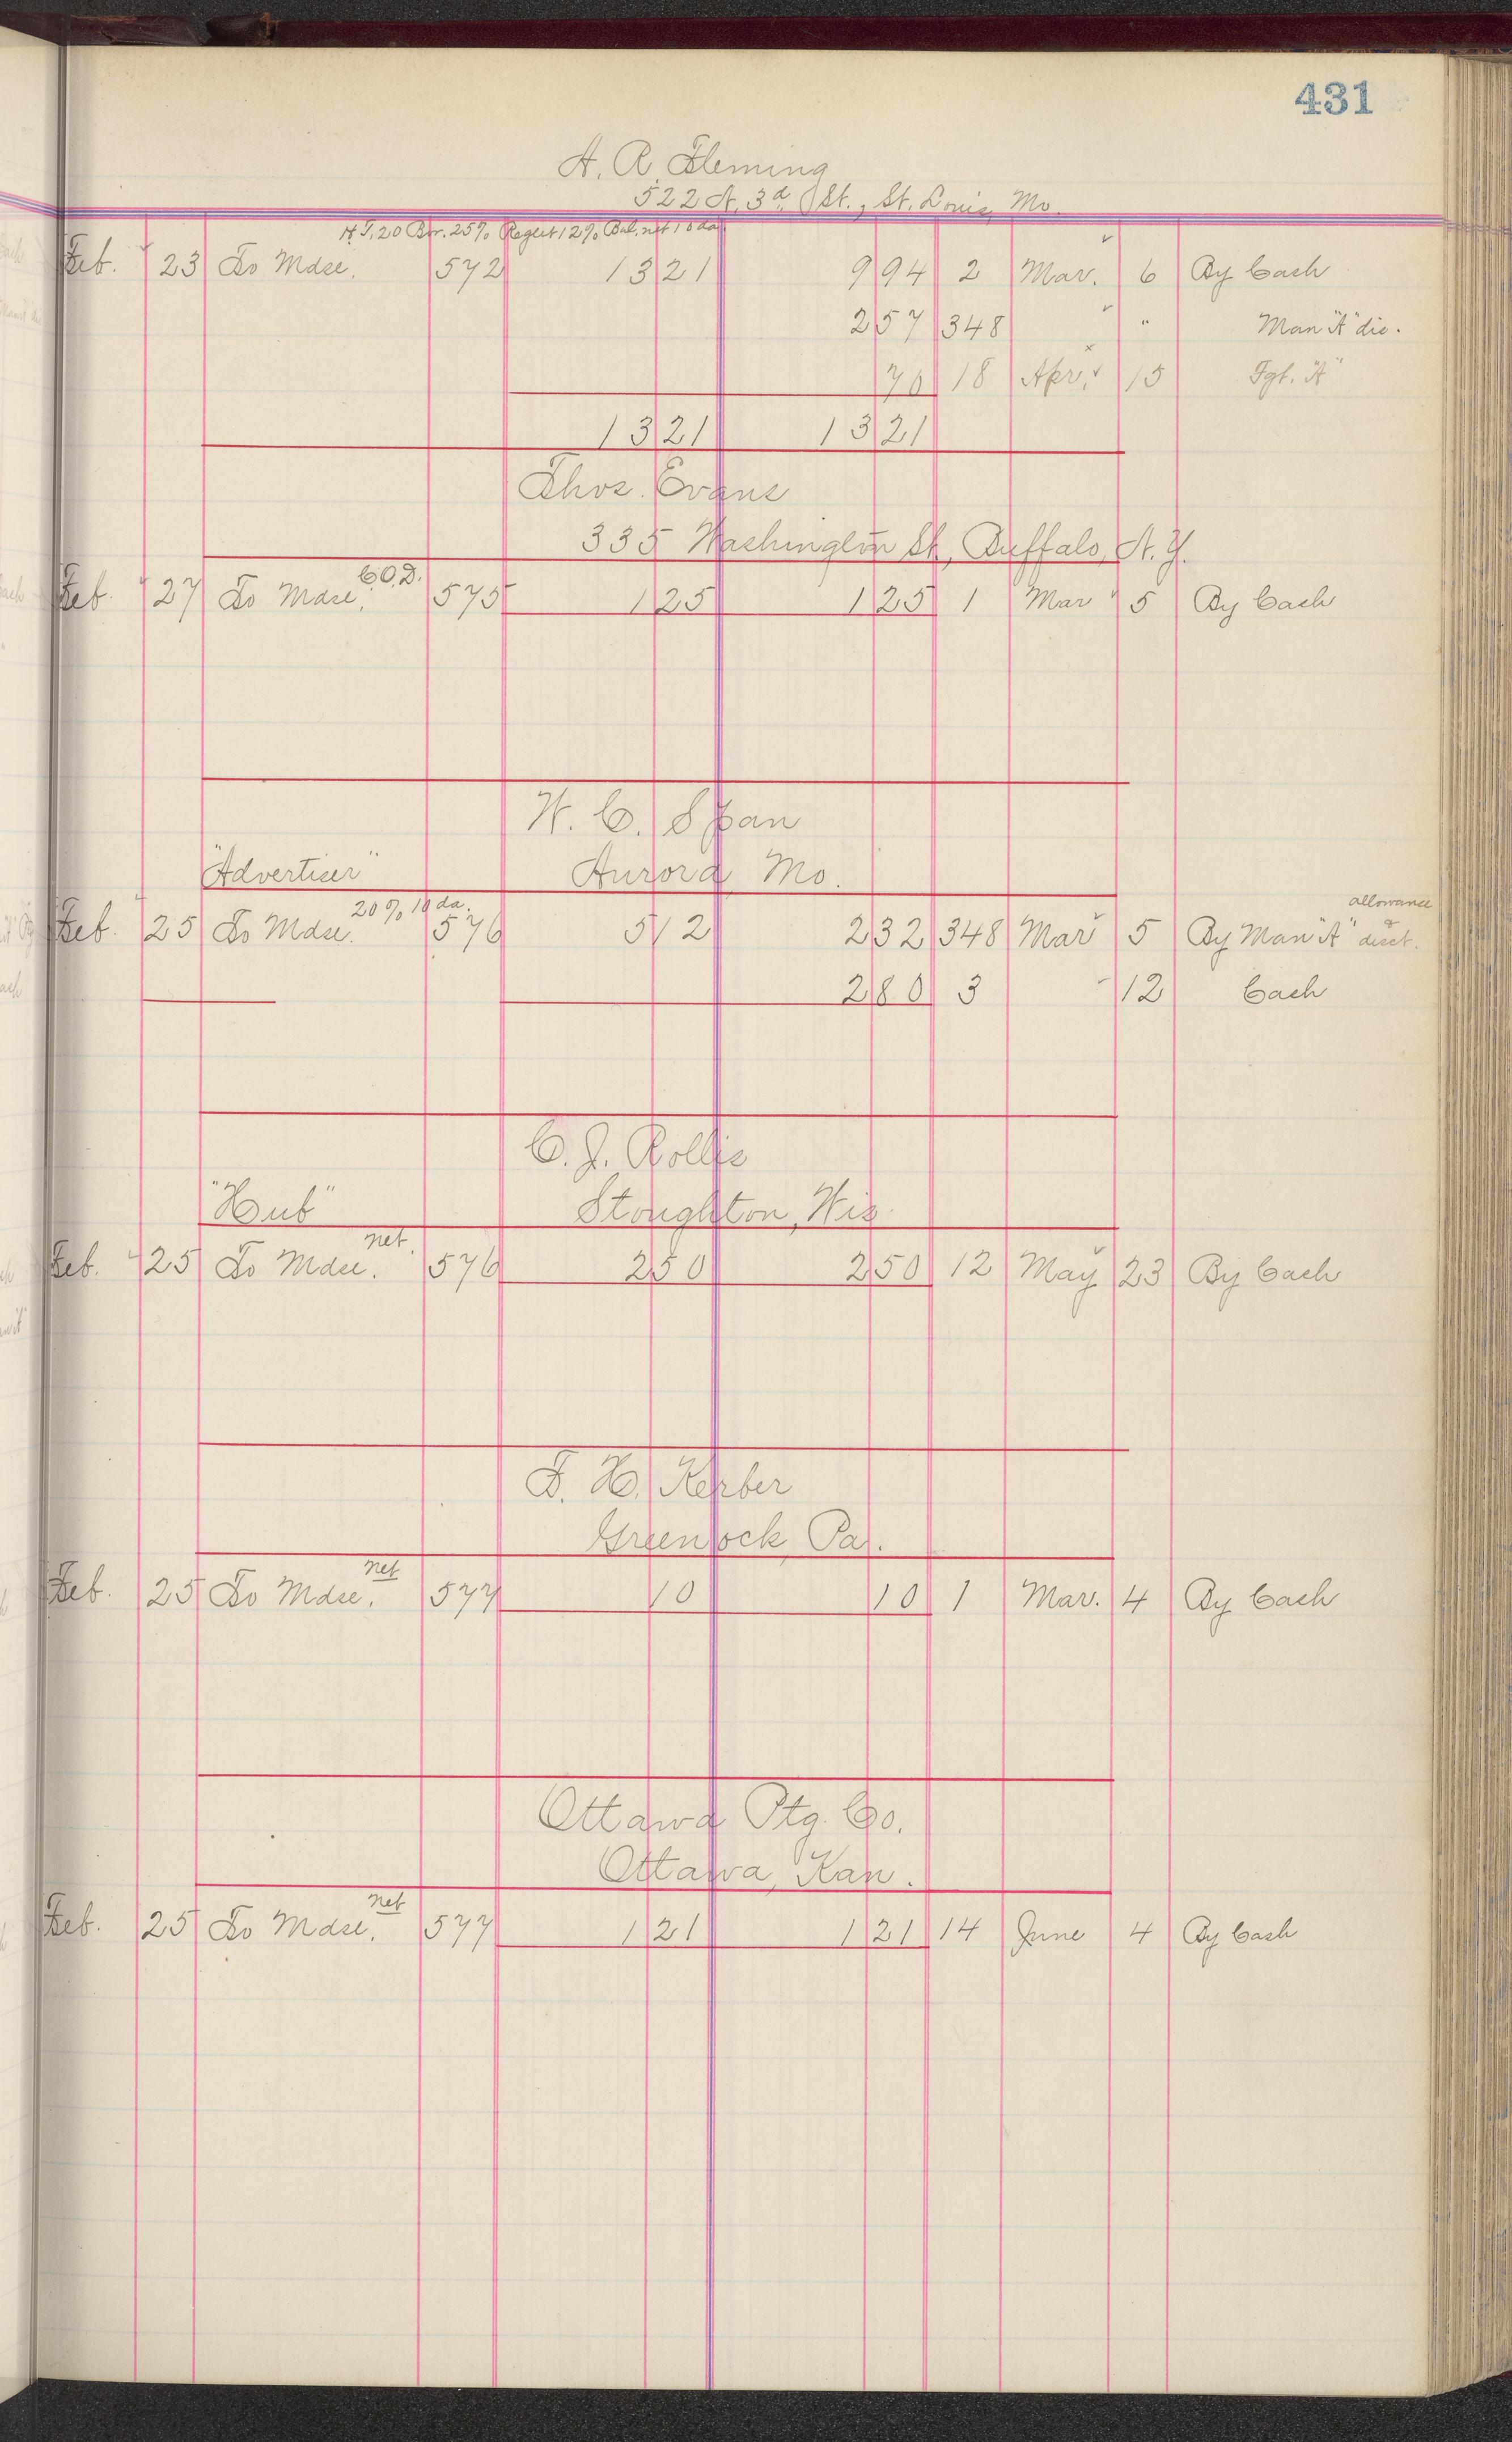 431
A. R. Fleming
522 N. 3d St., St. Louis, Mo.
H.T. 20 Bor. 25% Reglet 12% Bal. net 10 da.
Feb. 23 To Mdse. 572 1321 994 2 Mar. 6 By Cash
257 348 " Man "A" dis.
70 18 Apr. 15 Fgt. "A"
1321 1321
Thos. Evans
335 Washington St., Buffalo, N. Y.
C.O.D.
Feb 27 To Mdse. 575 125 125 1 Mar 5 By Cash
W. C. Span
"Advertiser" Aurora, Mo.
20% 10 da. allowance
Feb. 25 To Mdse. 576 512 232 348 Mar 5 By Man "A" & disct.
280 3 12 Cash
C. J. Rollis
"Hub" Stoughton, Wis.
net
Feb. 25 To Mdse. 576 250 250 12 May 23 By Cash
F. H. Kerber
Greenock, Pa.
net
Feb. 25 To Mdse. 577 10 10 1 Mar. 4 By Cash
Ottawa Ptg. Co.
Ottawa, Kan.
net
Feb. 25 To Mdse. 577 121 121 14 June 4 By Cash